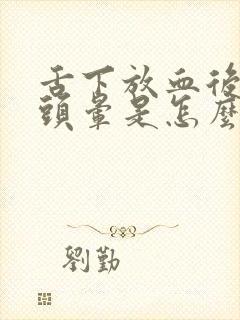 舌下放血後
頭暈是怎麼
劉勤